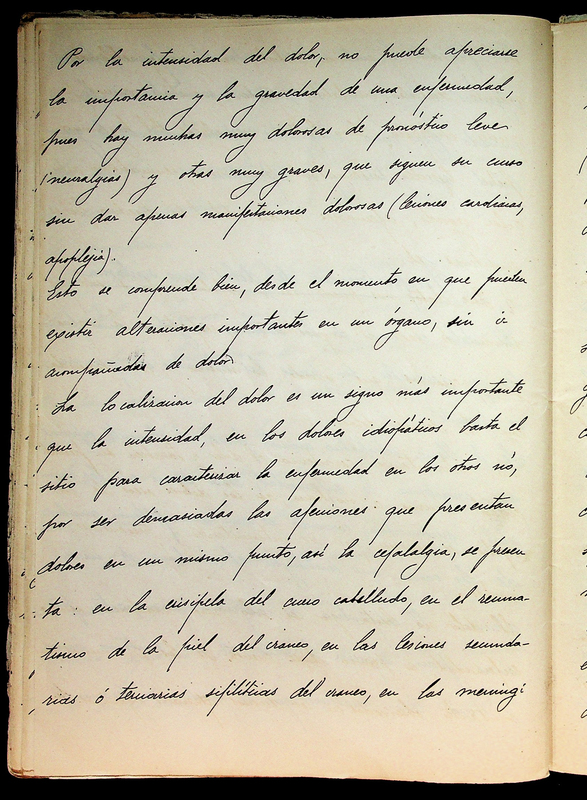 Por la intensidad del dolor, no puede apreciarse
la importancia y la gravedad de una enfermedad,
pues hay muchas muy dolorosas de pronóstico leve
(neuralgias) y otras muy graves, que siguen su curso
sin dar apenas manifestaciones dolorosas (lesiones cardiacas,
apoplejia).
Esto se comprende bien, desde el momento en que pueden
existir alteraciones importantes en un órgano, sin ir
acompañadas de dolor
La localizacion del dolor es un signo más importante
que la intensidad, en los dolores idiopáticos basta el
sitio para caracterizar la enfermedad en los otros nó,
por ser demasiadas las afeciones que presentan
dolores en un mismo punto, así la cefalalgia, se presen
ta: en la erisipela del cuero cabelludo, en el reuma-
tismo de la piel del craneo, en las lesiones secunda-
rias ó terciarias sifilíticas del craneo, en las meningi